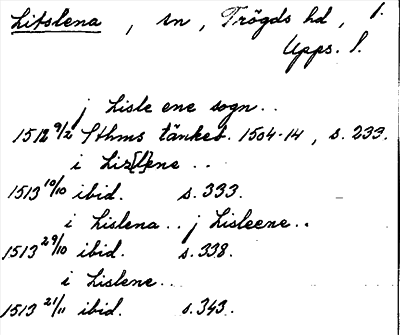 Litslena , sn , Trögds hd , 1.
Upps. l.
j Lisle ene sogn..
1512 9/2 Sthms tänkeb. 1504-14 , s. 233.
i Lis[l]ene ..
1513 10/10 ibid. s. 333.
i Lislena .. j Lisleene..
1513 29/10 ibid. s. 338.
i Lislene..
1513 21/11 ibid. s. 343.